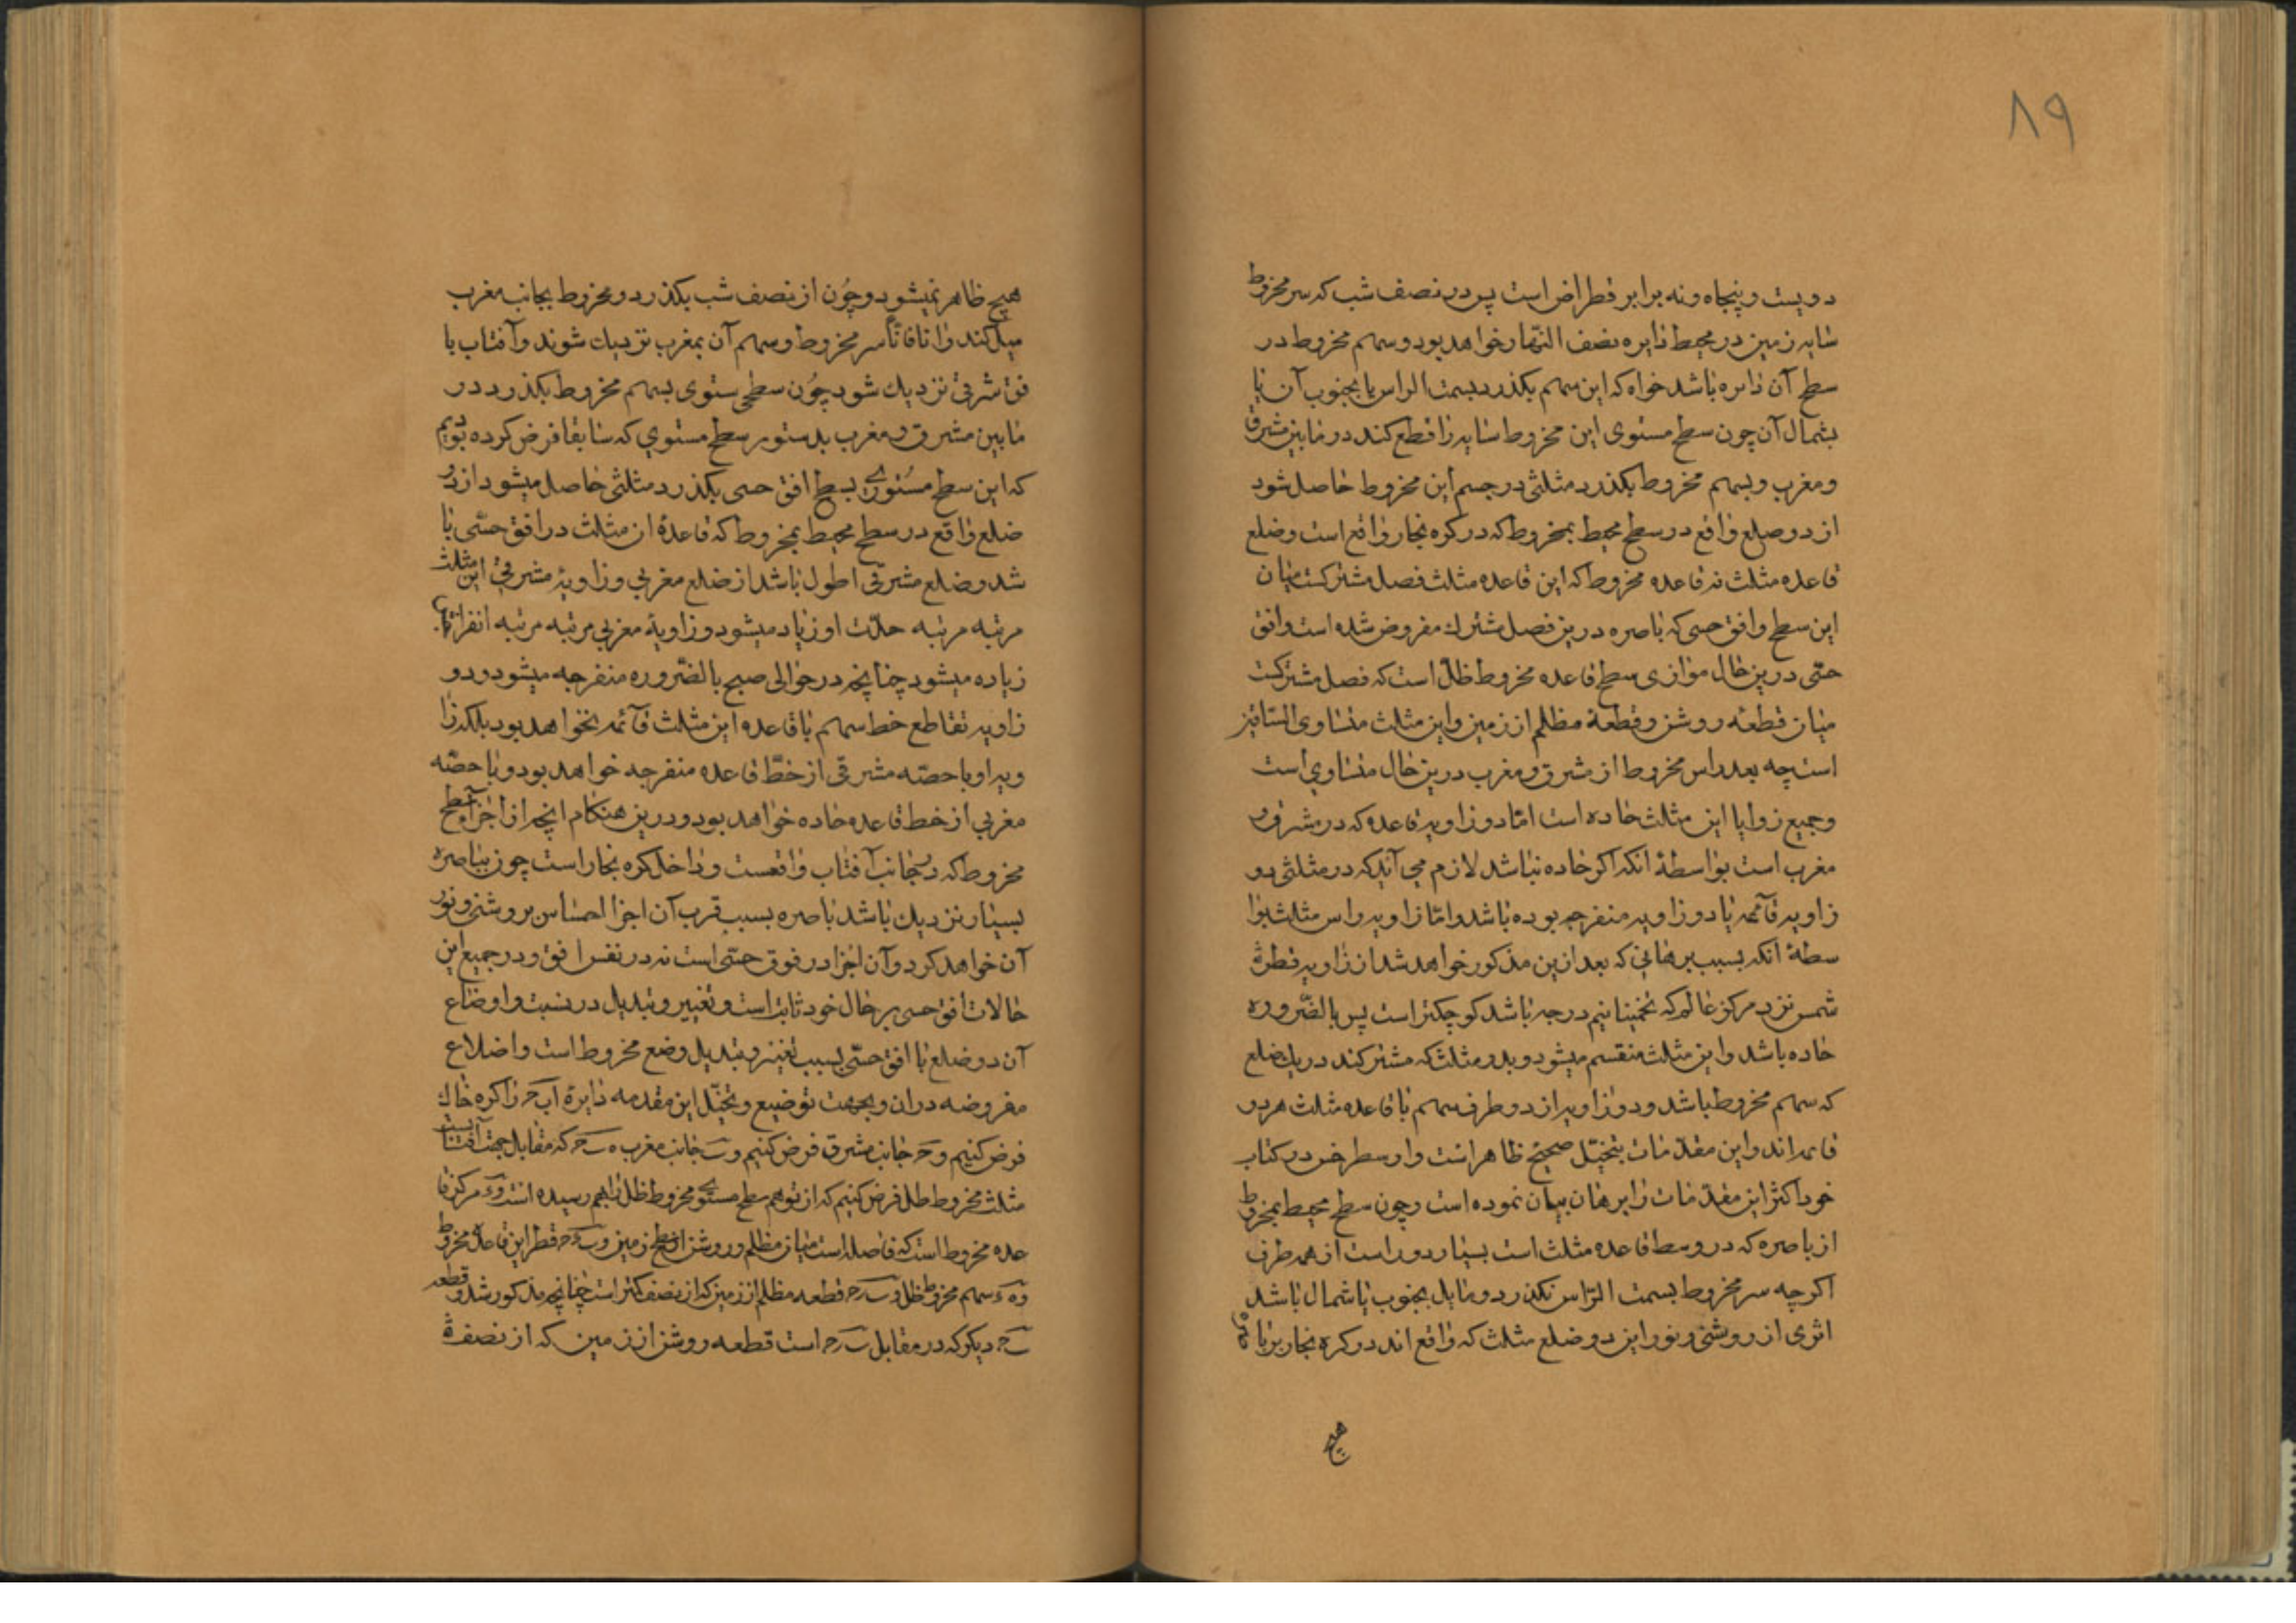 ۸۹
دویست و پنجاه و نه برابر قطر ارض است پس در نصف شب که سر مخروط
سایه زمین در محیط دایره نصف النهار خواهد بود و سهم مخروط در
سطح آن دایره باشد خواه که این سهم بکذرد بسمت الراس یا بجنوب آن یا
بشمال آن چون سطح مستوی این مخروط سایه را قطع کند در مابین مشرق
و مغرب و بسهم مخروط بکذرد مثلثی در جسم این مخروط حاصل شود
از دو ضلع واقع در سطح محیط بمخروط که در کره بخار واقع است و ضلع
قاعده مثلث نه قاعده مخروط که این قاعده مثلث فصل مشترکست میان
این سطح و افق حسی که باصره درین فصل مشترك مفروض شده است و افق
حسّی درین حال موازی سطح قاعده مخروط ظل است که فصل مشترکست
میان قطعه روشن و قطعه مظلم از زمین و این مثلث متساوی الساقین
است چه بعد راس مخروط از مشرق و مغرب درین حال متساوی است
و جمیع زوایا این مثلث حاده است امّا دو زاویه قاعده که در مشرق و
مغرب است بواسطهٔ آنکه اکر حاده نباشد لازم می آید که در مثلثی دو
زاویه قآئمه یا دو زاویه منفرجه بوده باشد و امّا زاویه راس مثلث بوا
سطهٔ آنکه بسبب برهانی که بعد ازین مذکور خواهد شد از زاویه قطر
شمس نزد مرکز عالم که تخمینا نیم درجه باشد کوچکتر است پس بالضّروره
حاده باشد و این مثلث منقسم میشود بدو مثلث که مشترکند در یك ضلع
که سهم مخروط باشد و دو زاویه از دو طرف سهم با قاعده مثلث هر دو
قایمه اند و این مقدّمات بتخیّل صحیح ظاهر است و ارسطرخس در کتاب
خود اکثر این مقدّمات را ببرهان بیان نموده است و چون سطح محیط بمخروط
از باصره که در وسط قاعده مثلث است بسیار دور است از همه طرف
اکرچه سر مخروط بسمت الرّاس نکذرد و مایل بجنوب یا شمال باشد
اثری از روشنی و نور این دو ضلع مثلث که واقع اند در کره بخار بر باصره
هیچ
هیچ ظاهر نمیشود و چون از نصف شب بکذرد و مخروط بجانب مغرب
میل کند و آنا فآنا سر مخروط و سهم آن بمغرب نزدیك شوند و آفتاب با
فق شرقی نزدیك شود چون سطحی مستوی بسهم مخروط بکذرد در
مابین مشرق و مغرب بدستور سطح مستوی که سابقا فرض کرده بودیم
که این سطح مستوی بسطح افق حسی بکذرد مثلثی حاصل میشود از دو
ضلع واقع در سطح محیط بمخروط که قاعدهٔ ان مثلث در افق حسّی با
شد و ضلع مشرقی اطول باشد از ضلع مغربی و زاویهٔ مشرقی این مثلث
مرتبه مرتبه حدّت او زیاد میشود و زاویهٔ مغربی مرتبه مرتبه انفراجها
زیاده میشود چنانچه در حوالی صبح بالضّروره منفرجه میشود و دو
زاویه تقاطع خط سهم با قاعده این مثلث قآئمه نخواهد بود بلکه زا
ویه او با حصّه مشرقی از خطّ قاعده منفرجه خواهد بود و با حصّه
مغربی از خط قاعده حاده خواهد بود و درین هنکام انچه از اجزآء سطح
مخروط که در جانب آفتاب واقعست و داخل کره بخار است چون بباصره
بسیار نزدیك باشد باصره بسبب قرب آن اجزا احساس بروشنی و نور
آن خواهد کرد و آن اجزا در فوق حسّی است نه در نفس افق و در جمیع این
حالات افق حسی بر حال خود ثابت است و تغییر و تبدیل در نسبت و اوضاع
آن دو ضلع با افق حسّی بسبب تغییر و تبدیل وضع مخروط است و اضلاع
مفروضه دران و بجهت توضیح و تخیّل این مقدمه دایرهٔ اب‍ح‍ را کره خاك
فرض کنیم و ح‍ جانب مشرق فرض کنیم و ب‍ جانب مغرب ه ب‍ ح‍ که مقابل جهت آفتاب است
مثلث مخروط ظل فرض کنیم که از توهم سطح مستوی مخروط ظل را بهم رسیده است و ء مرکز قا
عده مخروط است که فاصله است میان مظلم و روشن از سطح زمین و ب‍ ء ح‍ قطر این قاعده مخروط
و ه ء سهم مخروط ظل و ب‍ ح‍ قطعه مظلم از زمین که از نصف کمتر است چنانچه مذکور شد و قطعه
ب‍ ح‍ دیکر که در مقابل ب‍ ح‍ است قطعه روشن از زمین که از نصف